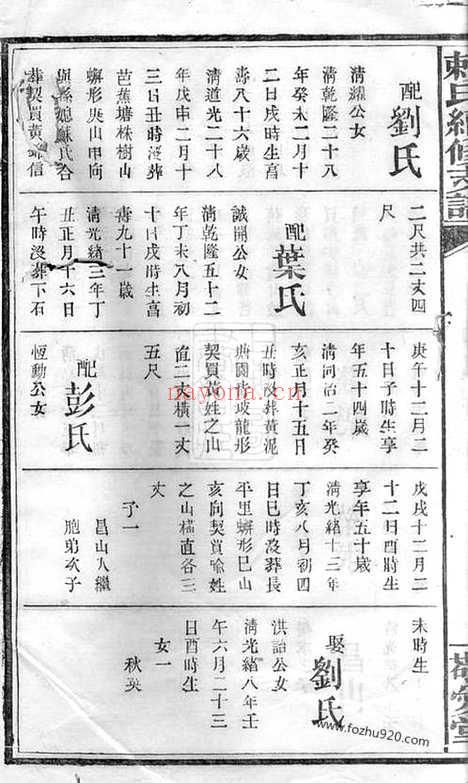 配劉氏
清耀公女
清乾隆二十八
年癸未二月十
二日戌時生享
壽八十六歲
清道光二十八
年戊申二月十
三日丑時歿葬
芭蕉塘株樹山
蠏形庚山甲向
蘇氏合
葬契買黃
信
二尺共二丈四
尺
配葉氏
誠開公女
清乾隆五十二
年丁未八月初
十日戌時生享
壽九十一歲
清光緒三年丁
丑正月十六日
午時沒葬下石
庚午十二月二
十日子時生享
年五十四歲
清同治二年癸
亥正月十五日
丑時沒葬黃泥
塘園背坡龍形
契買黃姓之山
直二丈橫一丈
五尺
配彭氏
恆動公女
戊戌十二月二
十二日酉時生
享年五十歲
清光緒十三年
丁亥八月初四
日巳時沒葬長
平里蠏形巳山
亥向契買喻姓
之山橫直各三
丈
子一
昌山入繼
胞弟次子
未時生
娶劉氏
洪諮公女
清光緒八年壬
午六月二十三
日酉時生
女一
秋英
nayona.cn
www.fozhu920.com